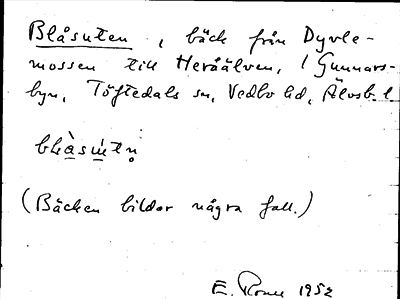 Blåsuten, bäck från Dyrle-
mossen till Heråälven, i Gunnars-
byn, Töftedals sn, Vedbo hd, Älvsb. l.
blàsu̇tn̥
(Bäcken bildar några fall.)
E. 1952